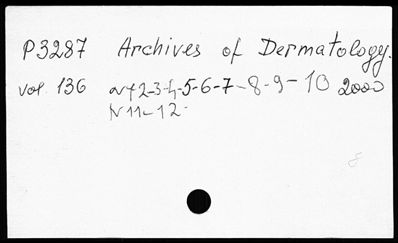 P3287 Archives of Dermatology.
vol. 136 N 1 2-3-4-5-6-7-8-9-10 2000
N 11-12-
8